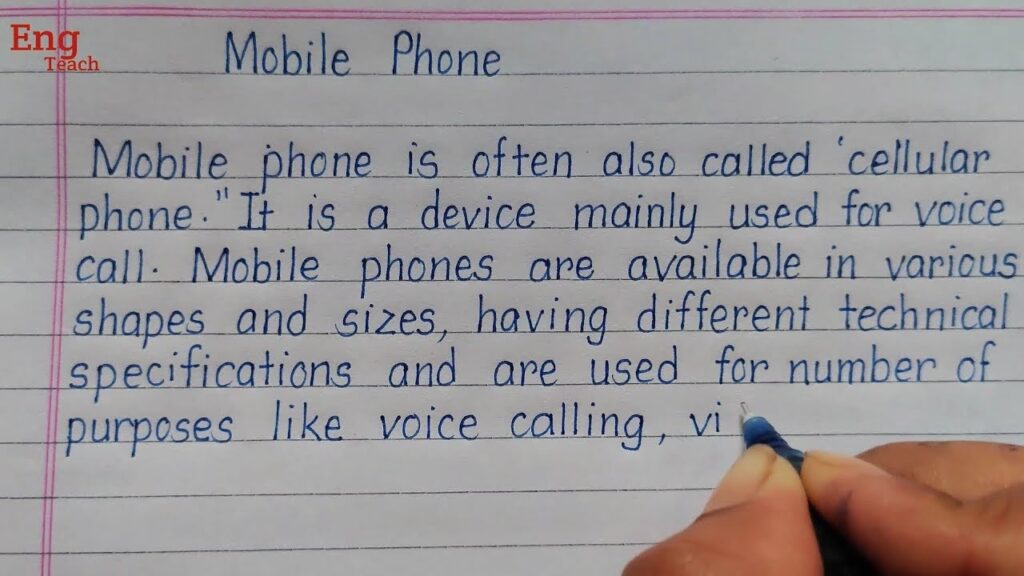 Eng
Teach
Mobile Phone
Mobile phone is often also called 'cellular
phone." It is a device mainly used for voice
call. Mobile phones are available in various
shapes and sizes, having different technical
specifications and are used for number of
purposes like voice calling, vi